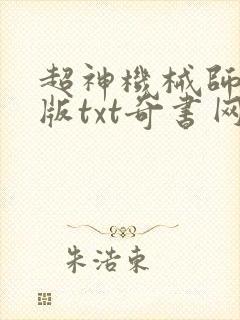 超神機械師
版txt奇書网
朱浩東